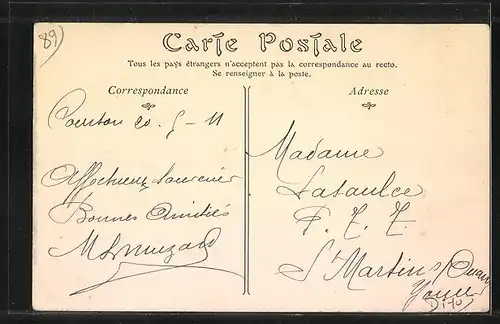 89
Carte Postale
Tous les pays étrangers n'acceptent pas la correspondance au recto.
Se renseigner à la poste.
Correspondance
20. 5 - 11
Affectueux souvenir
Bonnes Amitiés
Adresse
Madame
Lasaulce
P. T. T.
St Martin